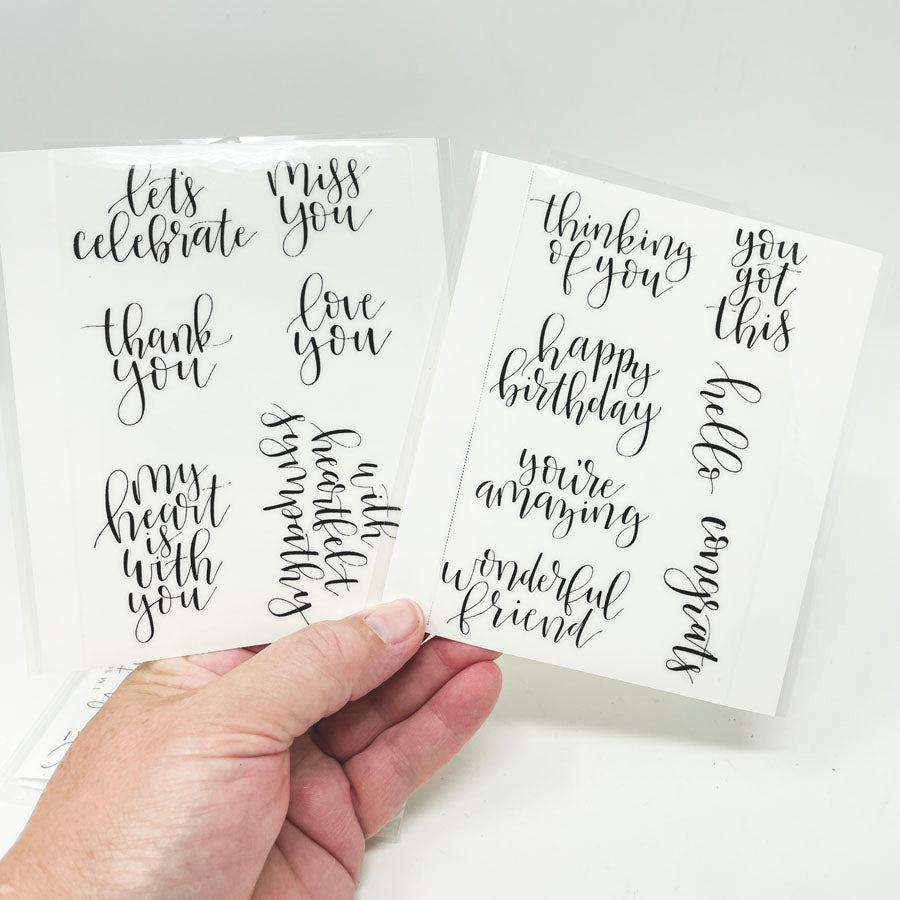 let's
celebrate
miss
you
thank
you
love
you
my
heart
is
with
you
with
heartfelt
sympathy
thinking
of you
you
got
this
happy
birthday
hello
you're
amazing
congrats
wonderful
friend